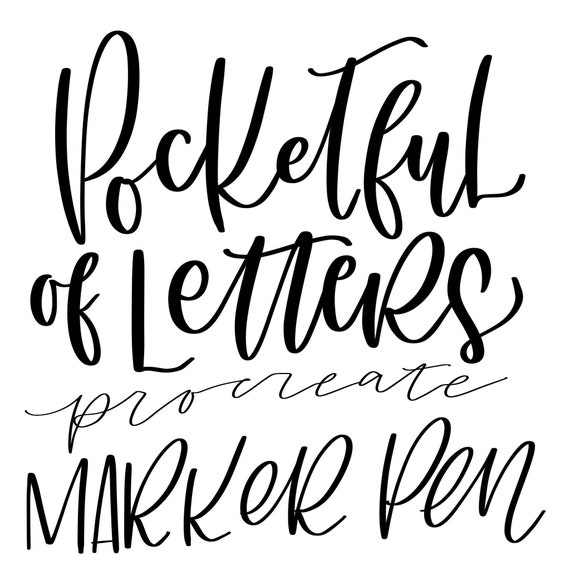 Pocketful
of Letters
procreate
MARKER Pen